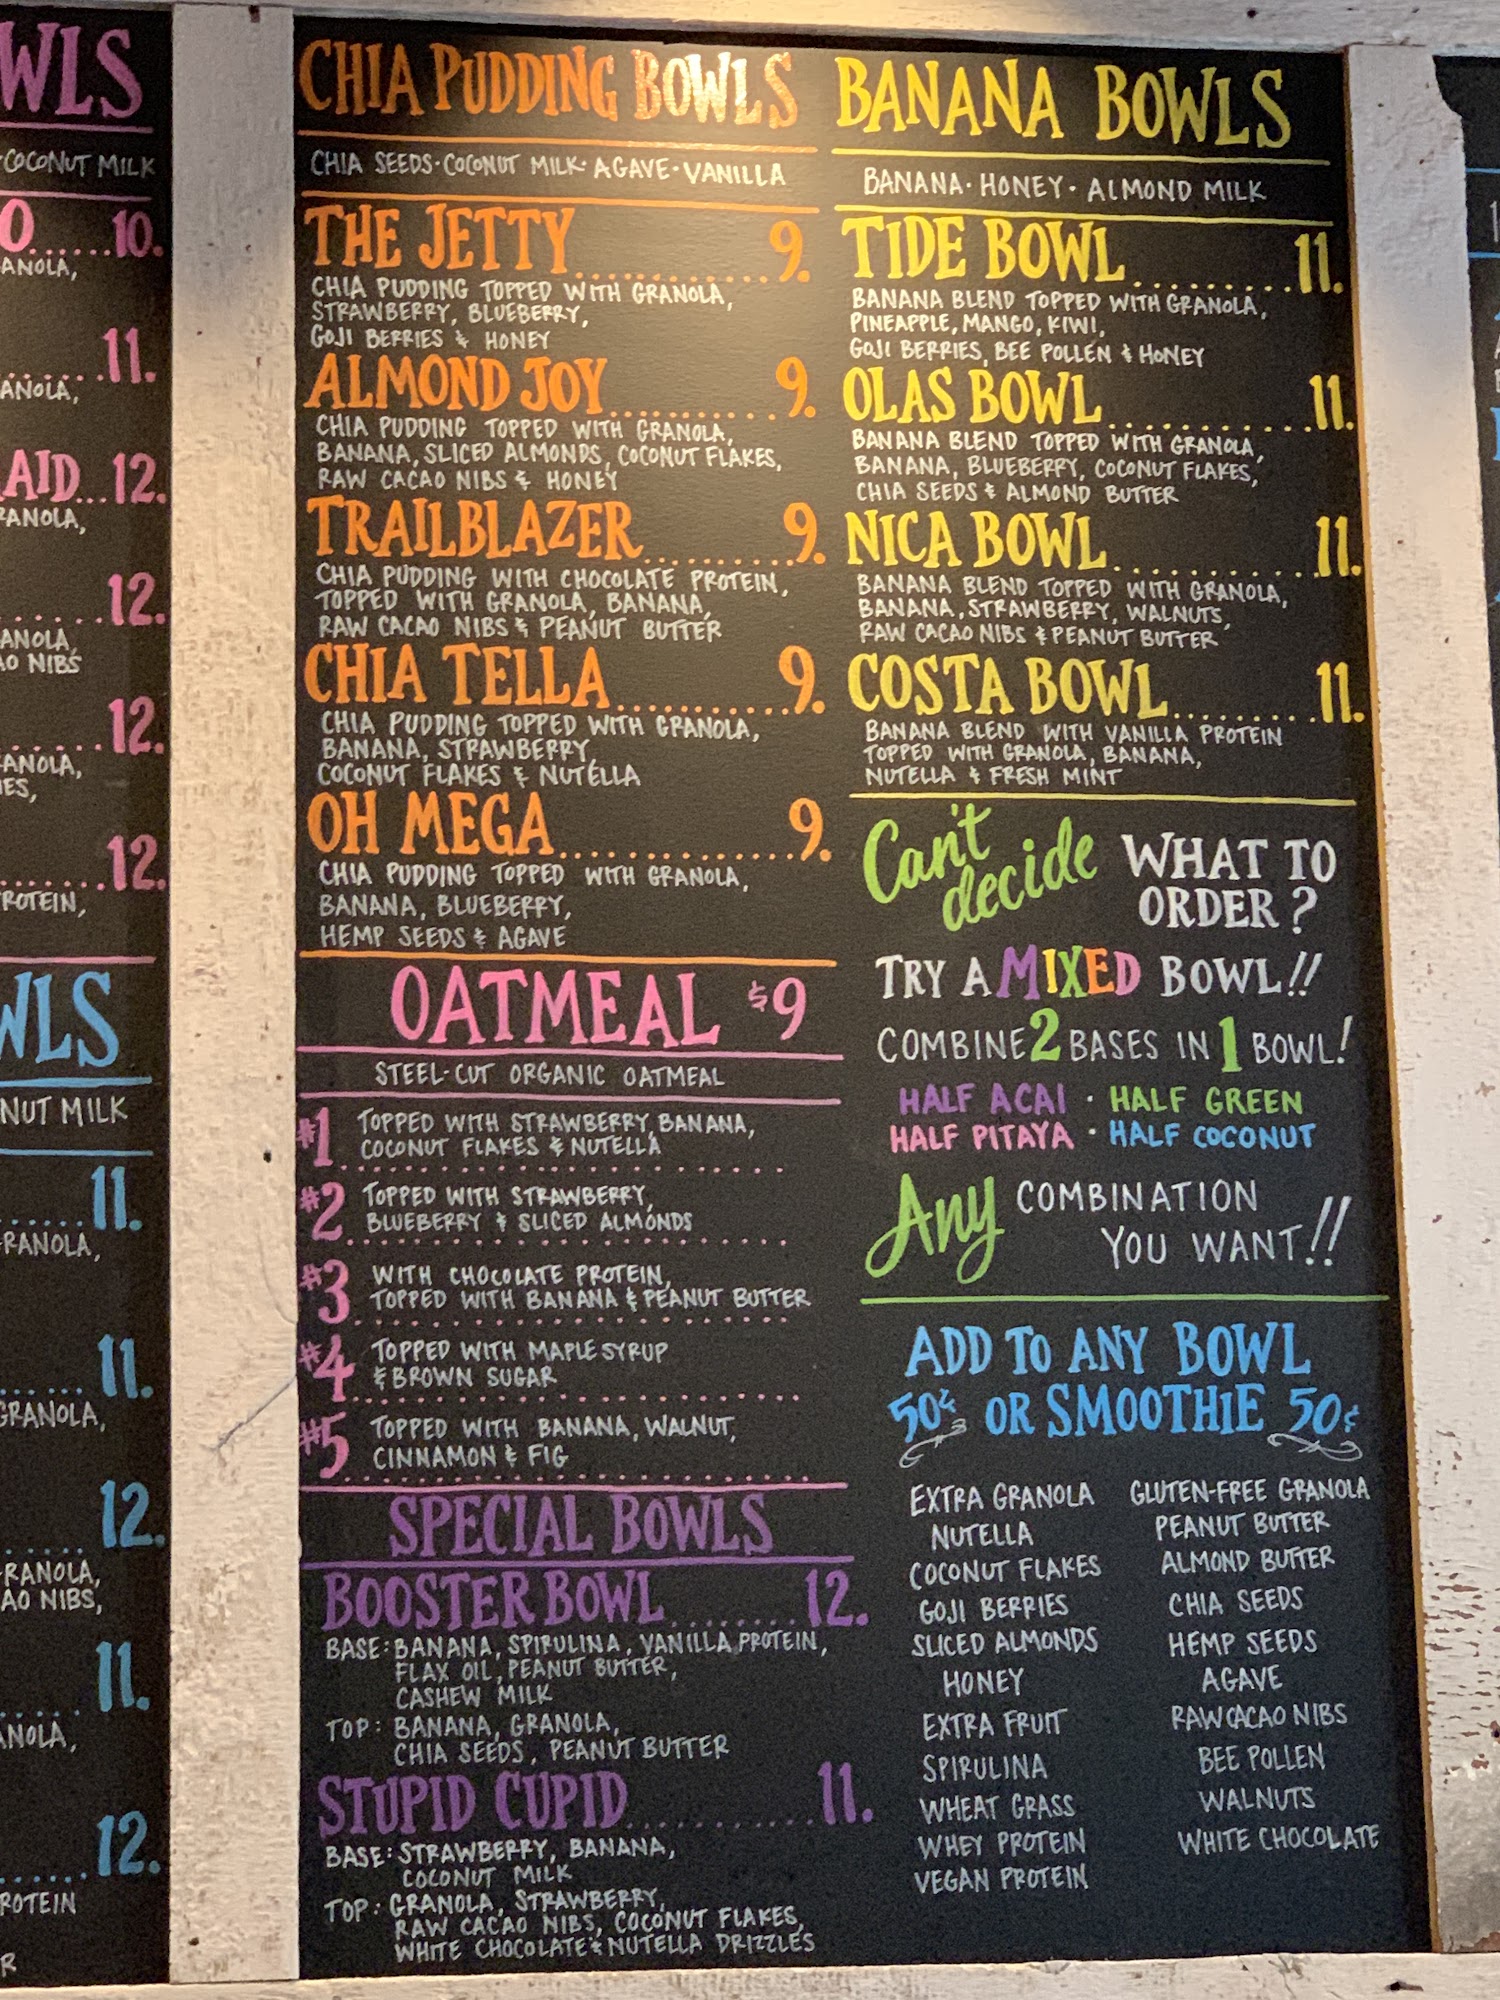 WLS
COCONUT MILK
O......10.
ANOLA,
......11.
ANOLA,
AID...12.
RANOLA,
......12.
ANOLA,
AO NIBS
......12.
ANOLA,
IES,
......12.
ROTEIN,
WLS
NUT MILK
......11.
RANOLA,
......11.
GRANOLA,
......12.
RANOLA,
AO NIBS,
......11.
NOLA,
......12.
ROTEIN
R
CHIA PUDDING BOWLS
CHIA SEEDS·COCONUT MILK·AGAVE·VANILLA
THE JETTY............9.
CHIA PUDDING TOPPED WITH GRANOLA,
STRAWBERRY, BLUEBERRY,
GOJI BERRIES & HONEY
ALMOND JOY..........9.
CHIA PUDDING TOPPED WITH GRANOLA,
BANANA, SLICED ALMONDS, COCONUT FLAKES,
RAW CACAO NIBS & HONEY
TRAILBLAZER.........9.
CHIA PUDDING WITH CHOCOLATE PROTEIN,
TOPPED WITH GRANOLA, BANANA,
RAW CACAO NIBS & PEANUT BUTTER
CHIA TELLA...........9.
CHIA PUDDING TOPPED WITH GRANOLA,
BANANA, STRAWBERRY,
COCONUT FLAKES & NUTELLA
OH MEGA..............9.
CHIA PUDDING TOPPED WITH GRANOLA,
BANANA, BLUEBERRY,
HEMP SEEDS & AGAVE
OATMEAL $9
STEEL-CUT ORGANIC OATMEAL
#1 TOPPED WITH STRAWBERRY, BANANA,
COCONUT FLAKES & NUTELLA
#2 TOPPED WITH STRAWBERRY,
BLUEBERRY & SLICED ALMONDS
#3 WITH CHOCOLATE PROTEIN,
TOPPED WITH BANANA & PEANUT BUTTER
#4 TOPPED WITH MAPLE SYRUP
& BROWN SUGAR
#5 TOPPED WITH BANANA, WALNUT,
CINNAMON & FIG
SPECIAL BOWLS
BOOSTER BOWL.......12.
BASE: BANANA, SPIRULINA, VANILLA PROTEIN,
FLAX OIL, PEANUT BUTTER,
CASHEW MILK
TOP: BANANA, GRANOLA,
CHIA SEEDS, PEANUT BUTTER
STUPID CUPID............11.
BASE: STRAWBERRY, BANANA,
COCONUT MILK
TOP: GRANOLA, STRAWBERRY,
RAW CACAO NIBS, COCONUT FLAKES,
WHITE CHOCOLATE & NUTELLA DRIZZLES
BANANA BOWLS
BANANA·HONEY·ALMOND MILK
TIDE BOWL..........11.
BANANA BLEND TOPPED WITH GRANOLA,
PINEAPPLE, MANGO, KIWI,
GOJI BERRIES, BEE POLLEN & HONEY
OLAS BOWL............11.
BANANA BLEND TOPPED WITH GRANOLA,
BANANA, BLUEBERRY, COCONUT FLAKES,
CHIA SEEDS & ALMOND BUTTER
NICA BOWL............11.
BANANA BLEND TOPPED WITH GRANOLA,
BANANA, STRAWBERRY, WALNUTS,
RAW CACAO NIBS & PEANUT BUTTER
COSTA BOWL.........11.
BANANA BLEND WITH VANILLA PROTEIN
TOPPED WITH GRANOLA, BANANA,
NUTELLA & FRESH MINT
Can't decide WHAT TO
ORDER?
TRY A MIXED BOWL!!
COMBINE 2 BASES IN 1 BOWL!
HALF ACAI · HALF GREEN
HALF PITAYA · HALF COCONUT
Any COMBINATION
YOU WANT!!
ADD TO ANY BOWL
50¢ OR SMOOTHIE 50¢
EXTRA GRANOLA GLUTEN-FREE GRANOLA
NUTELLA PEANUT BUTTER
COCONUT FLAKES ALMOND BUTTER
GOJI BERRIES CHIA SEEDS
SLICED ALMONDS HEMP SEEDS
HONEY AGAVE
EXTRA FRUIT RAW CACAO NIBS
SPIRULINA BEE POLLEN
WHEAT GRASS WALNUTS
WHEY PROTEIN WHITE CHOCOLATE
VEGAN PROTEIN